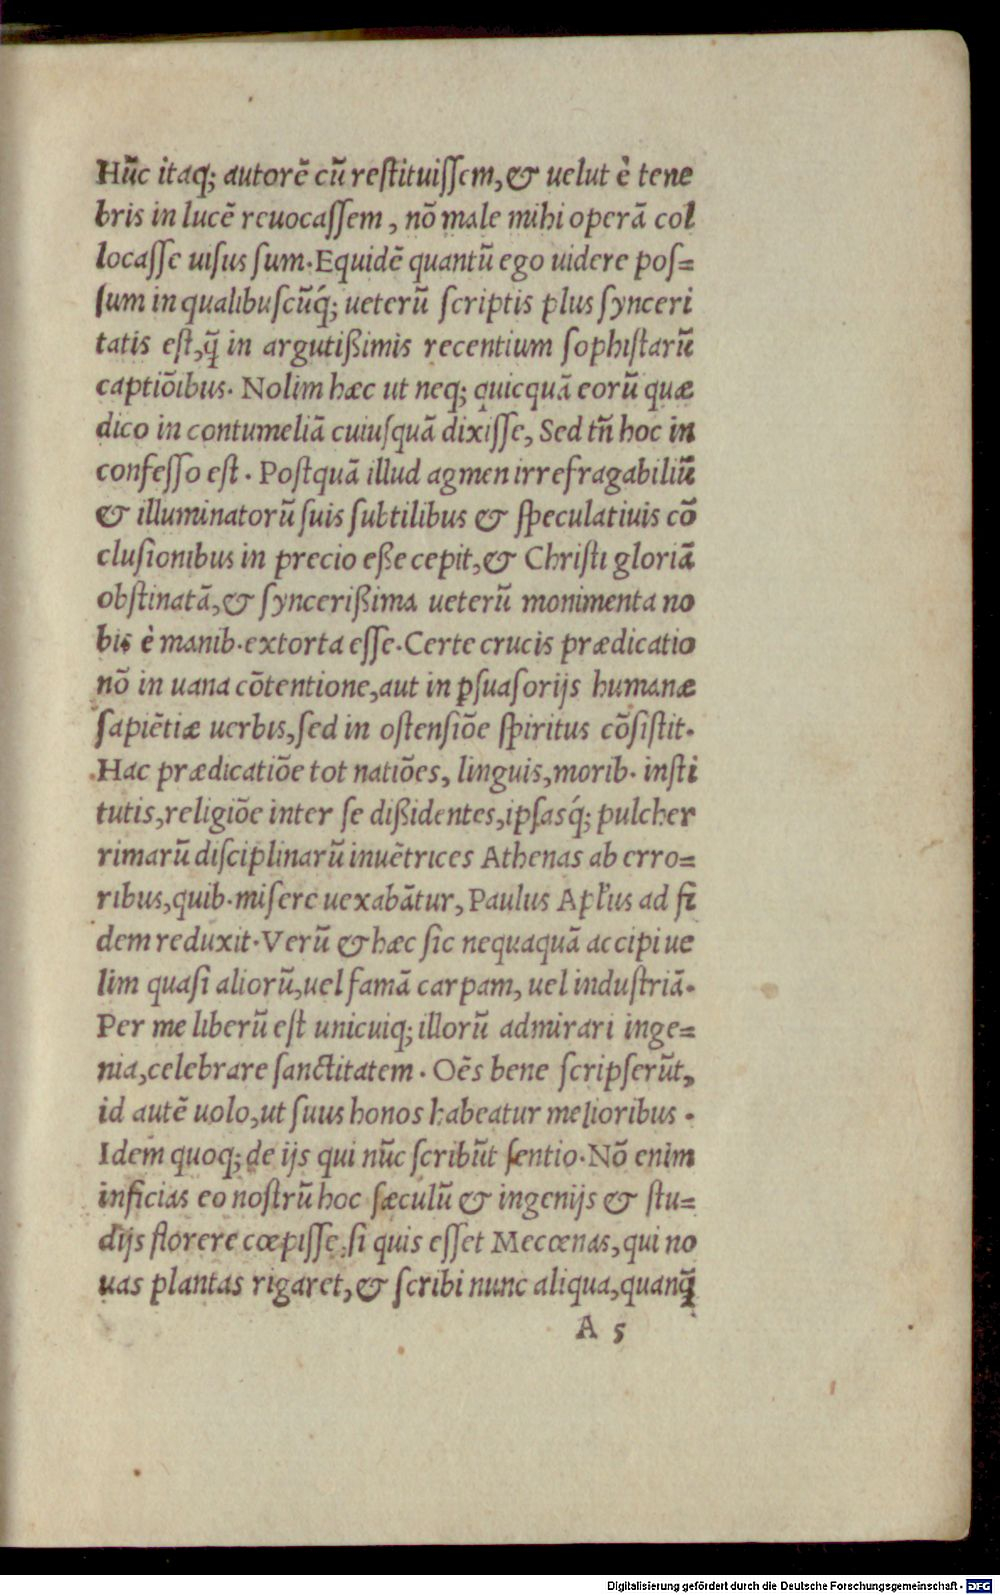 Hũc itaq; autorẽ cũ reſtituiſſem, & uelut è tene
bris in lucẽ reuocaſſem, nõ male mihi operã col
locaſſe uiſus ſum. Equidẽ quantũ ego uidere poſ=
ſum in qualibuſcũq́; ueterũ ſcriptis plus ſynceri
tatis eſt, q̃ in argutißimis recentium ſophiſtarũ
captiõibus. Nolim hæc ut neq; quicquã eorũ quæ
dico in contumeliã cuiuſquã dixiſſe, Sed tñ hoc in
confeſſo eſt. Poſtquã illud agmen irrefragabiliũ
& illuminatorũ ſuis ſubtilibus & ſpeculatiuis cõ
cluſionibus in precio eße cepit, & Chriſti gloriã
obſtinatã, & ſyncerißima ueterũ monimenta no
bis è manib. extorta eſſe. Certe crucis prædicatio
nõ in uana cõtentione, aut in ꝑſuaſorijs humanæ
ſapiẽtiæ uerbis, ſed in oſtenſiõe ſpiritus cõſiſtit.
Hac prædicatiõe tot natiões, linguis, morib. inſti
tutis, religiõe inter ſe dißidentes, ipſasq́; pulcher
rimarũ diſciplinarũ inuẽtrices Athenas ab erro=
ribus, quib. miſere uexabãtur, Paulus Apľus ad fi
dem reduxit. Verũ & hæc ſic nequaquã accipi ue
lim quaſi aliorũ, uel famã carpam, uel induſtriã.
Per me liberũ eſt unicuiq; illorũ admirari inge=
nia, celebrare ſanctitatem. Oẽs bene ſcripſerũt,
id autẽ uolo, ut ſuus honos habeatur melioribus.
Idem quoq; de ijs qui nũc ſcribũt ſentio. Nõ enim
inficias eo noſtrũ hoc ſæculũ & ingenijs & ſtu=
dijs florere cœpiſſe, ſi quis eſſet Mecœnas, qui no
uas plantas rigaret, & ſcribi nunc aliqua, quanq̃
A 5
Digitalisierung gefördert durch die Deutsche Forschungsgemeinschaft - DFG